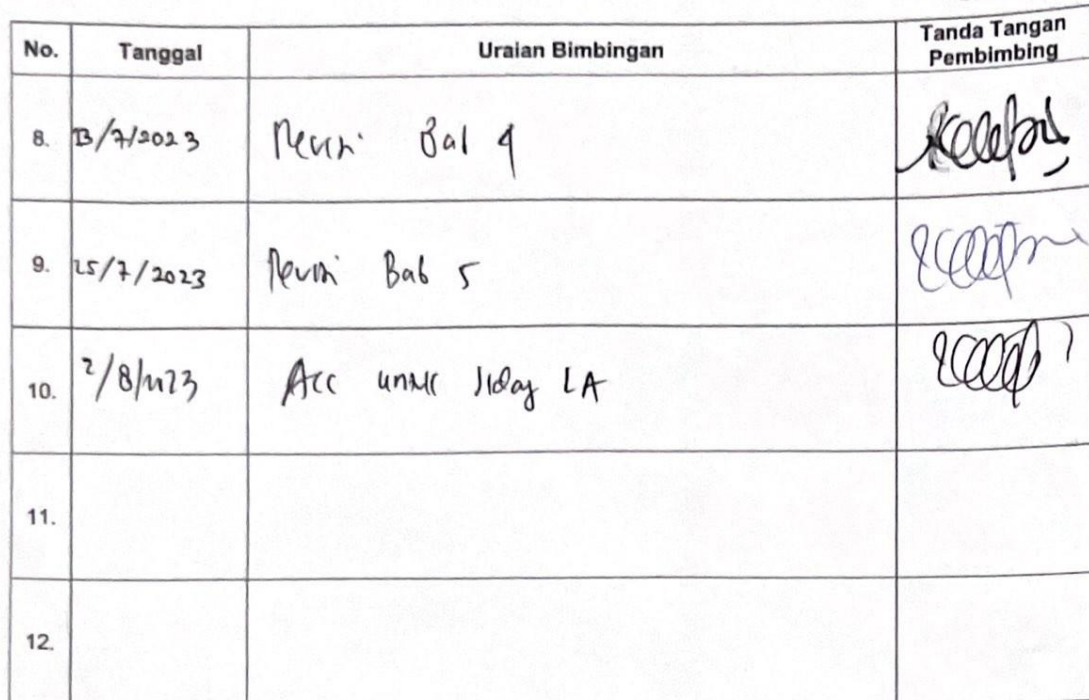 No. Tanggal Uraian Bimbingan Tanda Tangan
Pembimbing
8. 13/7/2023 Revisi Bab 4
9. 25/7/2023 Revisi Bab 5
10. 2/8/2023 Acc untuk sidang LA
11.
12.